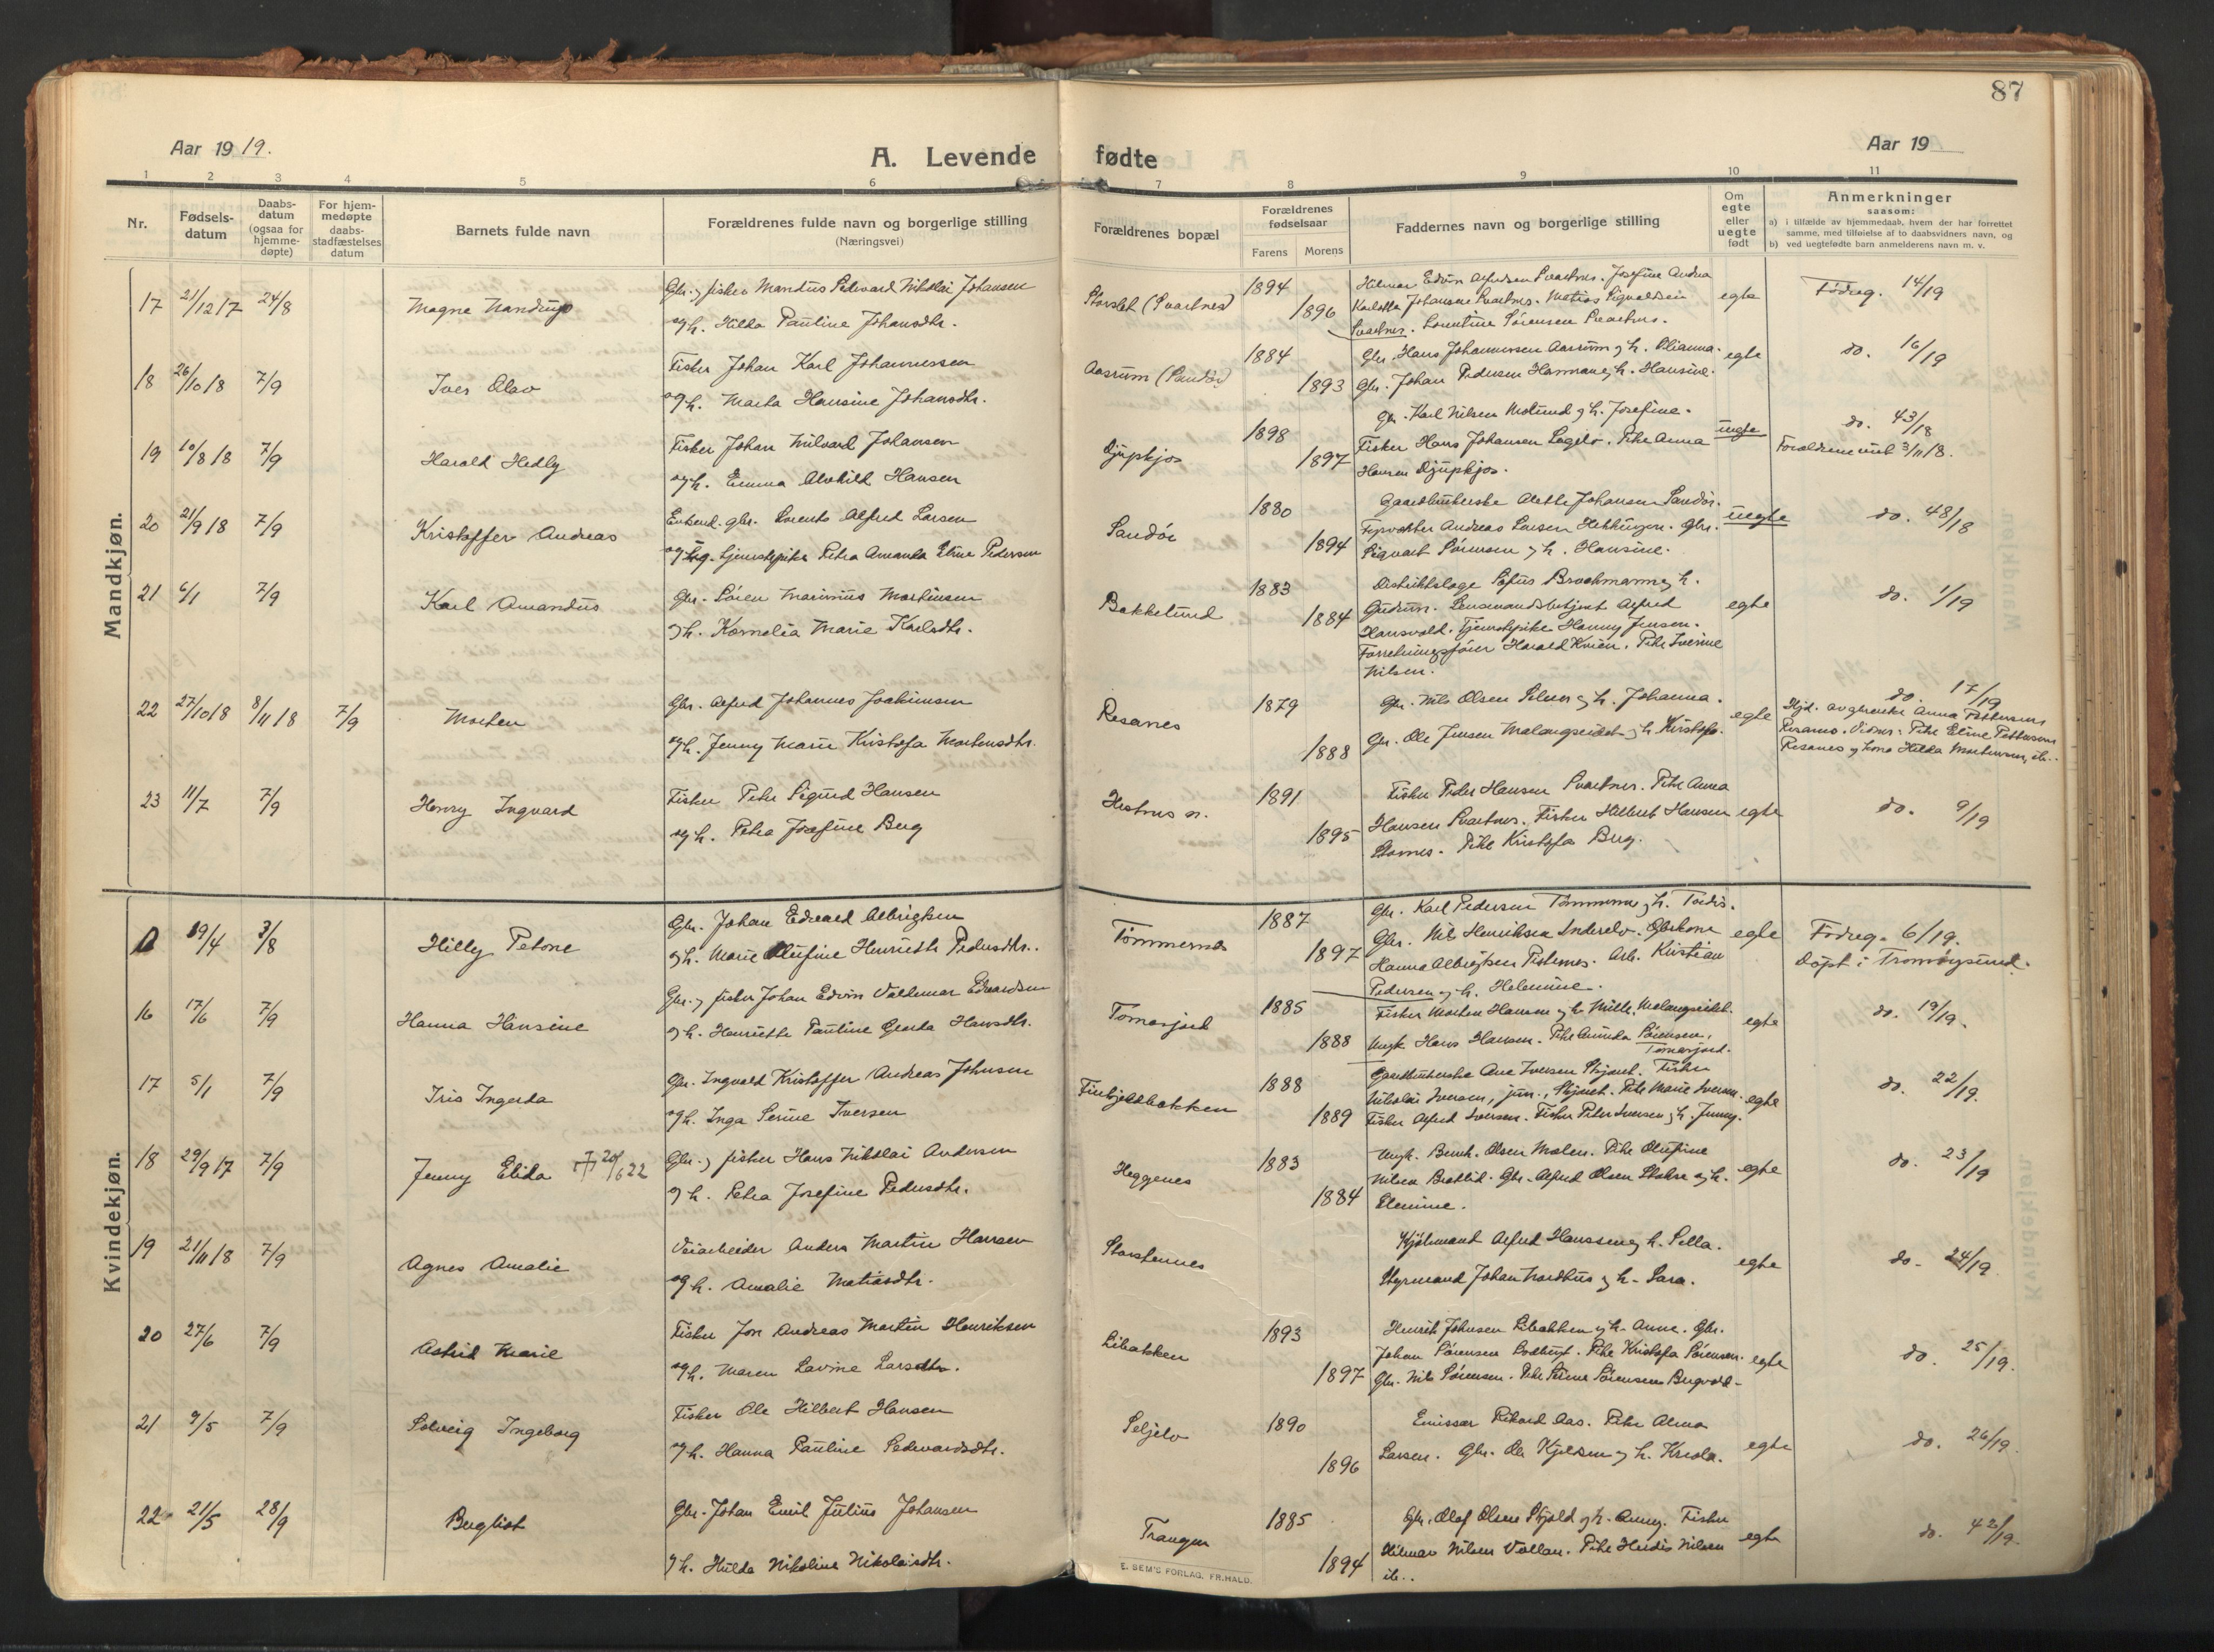 87
Aar 1919.
A. Levende fødte
Aar 19
1 2 3 4 5 6 7 8 9 10 11
Nr.
Fødsels-
datum
Daabs-
datum
(ogsaa for
hjemme-
døpte)
For hjem-
medøpte
daabs-
stadfæstelses
datum
Barnets fulde navn
Forældrenes fulde navn og borgerlige stilling
(Næringsvei)
Forældrenes bopæl
Forældrenes
fødselsaar
Farens Morens
Faddernes navn og borgerlige stilling
Om
egte
eller
uegte
født
Anmerkninger
saasom:
a) i tilfælde av hjemmedaab, hvem der har forrettet
samme, med tilføielse af to daabsvidners navn, og
b) ved uegtefødte barn anmelderens navn m. v.
Mandkjøn.
17 21/12 17 24/8 Magne Nandrup
Gbr. og fisker Mandius Edevard Nikolai Johansen
og h. Hilda Pauline Johansdtr.
Storslet (Svartnes) 1894 1896
Hilmar Edvin Alfredsen Svartnes. Josefine Andrea
Karlotte Johansen Svartnes. Matias Sigvaldsen
Svartnes. Sørensen Svartnes.
egte
Fødreg. 14/19
18 26/10 18 7/9 Iver Olav
Fisker Johan Karl Johannessen
og h. Marta Hansine Johansdtr.
Aasrum (Sandør) 1884 1893
Gbr. Hans Johannessen Aasrum og h.
Gbr. Johan Pedersen og h. Hansine.
egte
do. 16/19
19 10/8 18 7/9 Harald Hedly
Fisker Johan Milvard Johansen
og h. Emma Alvhild Hansen
Djupkjos 1898 1897
Gbr. Karl Nilsen og h. Josefine.
Fisker Hans Johansen . Pike Anna
Hansen Djupkjos.
uegte
do. 43/18
Forældrene viet 3/11 18.
20 21/9 18 7/9 Kristoffer Andreas
Enkem. gbr. Lorents Alfred Larsen
og ug. tjenestepike Petra Amanda Eline Pedersen
Sandør 1880 1894
Gaardbrukerske Alette Johansen Sandør.
Fyrvokter Andreas Larsen Hekkingen. Gbr.
Sigvart Sørensen og h. Hansine.
uegte
do. 48/18
21 6/1 7/9 Karl Amandus
Gbr. Søren Marinius Martinsen
og h. Kornelia Marie Karlsdtr.
Bakkelund 1883 1884
Distriktslæge Sofus Brochmann og h.
Gudrun. Lensmandsbetjent Alfred
Hansvold. Tjenestepike Hanny Jensen.
Forretningsfører Harald Kvien. Pike Iverine
Nilsen.
egte
do. 1/19
22 27/10 18 8/11 18 7/9 Morten
Gbr. Alfred Johannes Joakimsen
og h. Jenny Marie Kristofa Mortensdtr.
Resanes 1879 1888
Gbr. Nils Olsen og h. Johanna.
Gbr. Ole Jensen Malangseidet og h. Kristofa.
egte
do. 17/19
Hjd. av Anna Pettersen
Resanes. Vidner: Pike Eline Pettersen
Resanes og kone Hilda Mortensen, ib.
23 11/7 7/9 Henry Ingvard
Fisker Peter Sigurd Hansen
og h. Petra Josefine Berg
Hestnes n. 1891 1895
Fisker Peder Hansen Svartnes. Pike Anna
Hansen Svartnes. Fisker Hilbert Hansen
Stornes. Pike Kristofa Berg.
egte
do. 9/19
Kvindekjøn.
0 19/4 3/8 Hilly Petone
Gbr. Johan Edvard Albrigtsen
og h. Marie Olufine Henriette Pedersdtr.
Tømmernes 1887 1897
Gbr. Karl Pedersen Tømmernes og h. Tordis.
Gbr. Nils Henriksen Inderelv. Gbrkone
Hanna Albrigtsen . Arb. Kristian
Pedersen og h. Helemine.
egte
Fødreg. 6/19.
Døpt i Tromsøysund.
16 17/6 7/9 Hanna Hansine
Gbr. og fisker Johan Edvin Valdemar Edvardsen
og h. Henriette Pauline Gjerda Hansdtr.
Tomasjord 1885 1888
Fisker Morten Hansen og h. Milla, Malangseidet.
Ungk. Hans Hansen. Pike Sørensen,
Tomasjord.
egte
do. 19/19.
17 5/1 7/9 Iris Ingerda
Gbr. Ingvald Kristoffer Andreas Johnsen
og h. Inga Serine Iversen
Finfjeldbakken 1888 1889
Gaardbrukerske Ane Iversen . Fisker
Nikolai Iversen, jun., . Pike Marie Iversen.
Fisker Alfred Iversen. Fisker Peter Iversen og h. Jenny.
egte
do. 22/19.
18 29/9 17 7/9 Jenny Elida † 20/6 22
Gbr. og fisker Hans Nikolai Andersen
og h. Petra Josefine Pedersdtr.
Heggenes 1883 1884
Ungk. Bernh. Olsen Malen. Pike Olufine
Nilsen Brattlid. Gbr. Alfred Olsen og h.
Elenine.
egte
do. 23/19
19 21/11 18 7/9 Agnes Amalie
Veiarbeider Anders Martin Hansen
og h. Amalie Matiasdtr.
Storsteinnes
Kjøbmand Alfred Hanssen og h. Sella.
Styrmand Johan Nordhus og h. Sara.
egte
do. 24/19
20 27/6 7/9 Astrid Marie
Fisker Jon Andreas Martin Henriksen
og h. Maren Lavine Larsdtr.
Libakken 1893 1897
Henrik Johnsen Libakken og h. Anne. Gbr.
Johan Sørensen . Pike Kristofa Sørensen.
Gbr. Nils Sørensen. Pike Sørensen
egte
do. 25/19.
21 9/5 7/9 Solveig Ingeborg
Fisker Ole Hilbert Hansen
og h. Hanna Pauline Pedvardsdtr.
Seljelv 1890 1896
Emissær Rikard Aas. Pike Alma
Larsen. Gbr. Ole og h.
egte
do. 26/19.
22 21/5 28/9 Bergliot
Gbr. Johan Emil Julius Johansen
og h. Hulda Nikoline Nikolaisdtr.
Trangen 1885 1894
Gbr. Olaf Olsen Skjold og h. Anny. Fisker
Hilmar Nilsen Vollan. Pike Herdis Nilsen
ib..
egte
do. 42/19.
E. SEM'S FORLAG, FR.HALD.